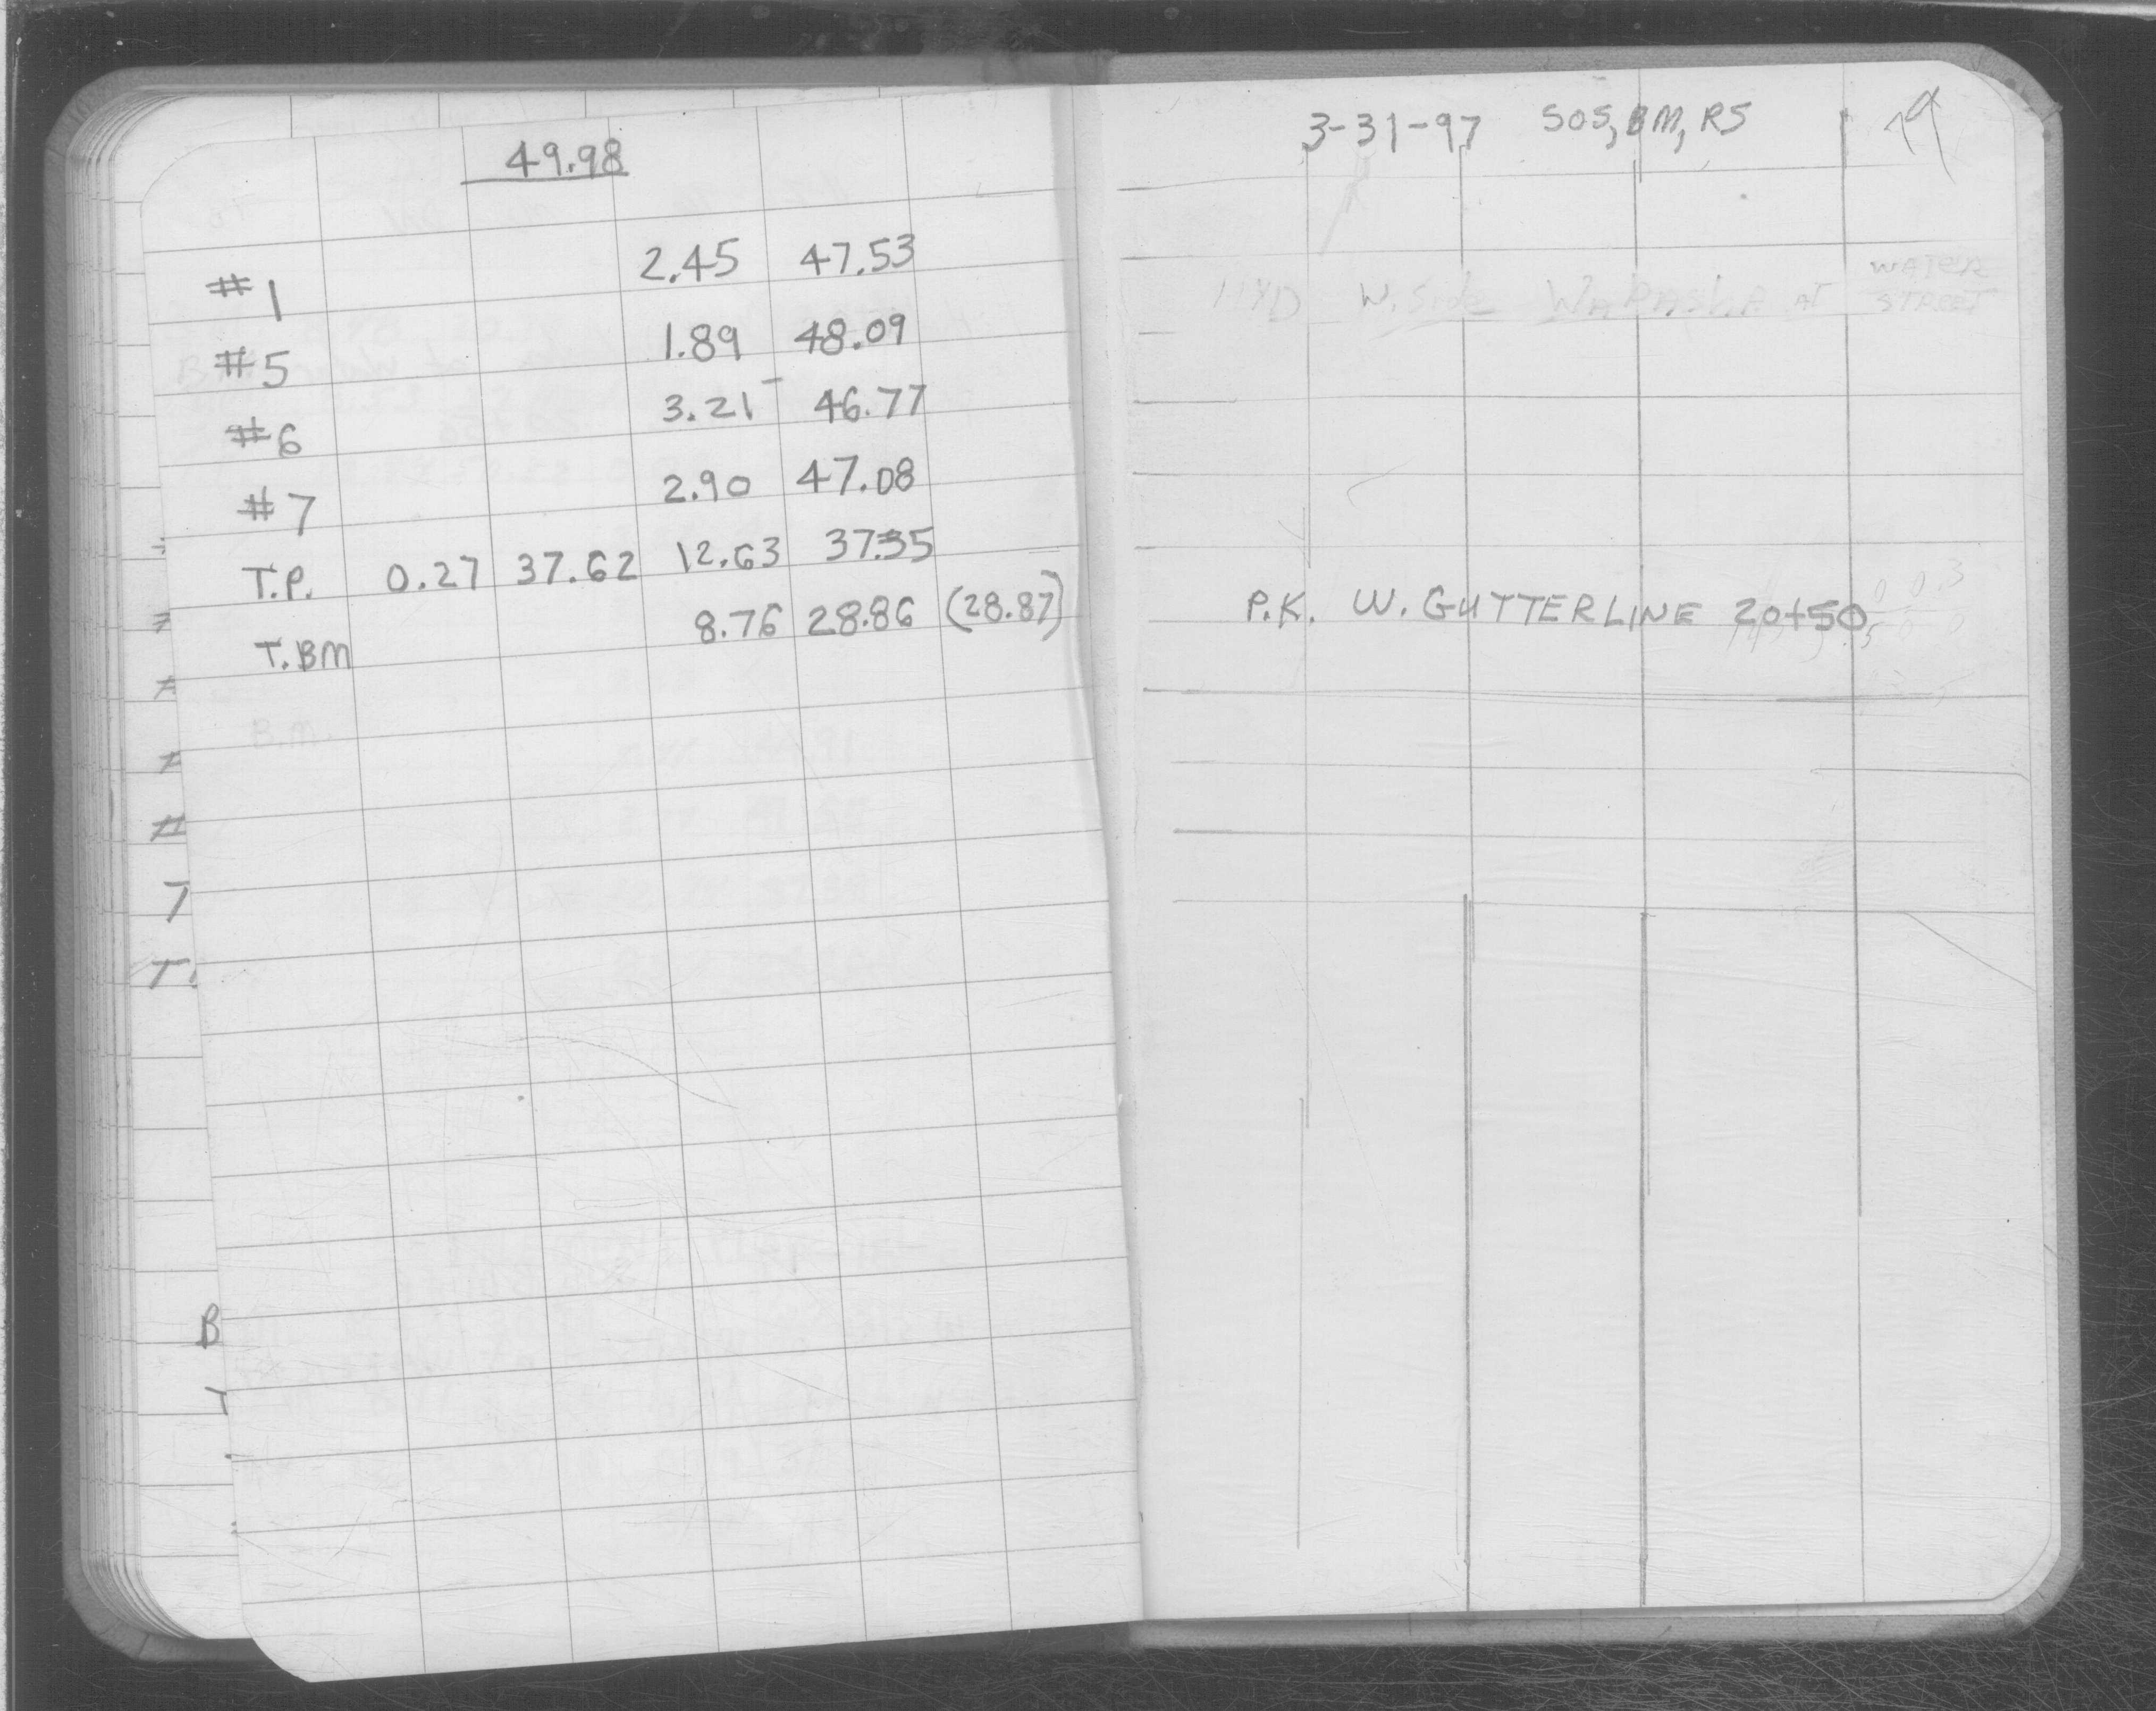 49.98
#1 2.45 47.53
#5 1.89 48.09
#6 3.21 46.77
#7 2.90 47.08
T.P. 0.27 37.62 12.63 37.35
T.BM 8.76 28.86 (28.87)
B.M.
3-31-97 SOS, BM, RS 79
HYD W. Side WABASHA AT WATER STREET
P.K. W. GUTTERLINE 20+50